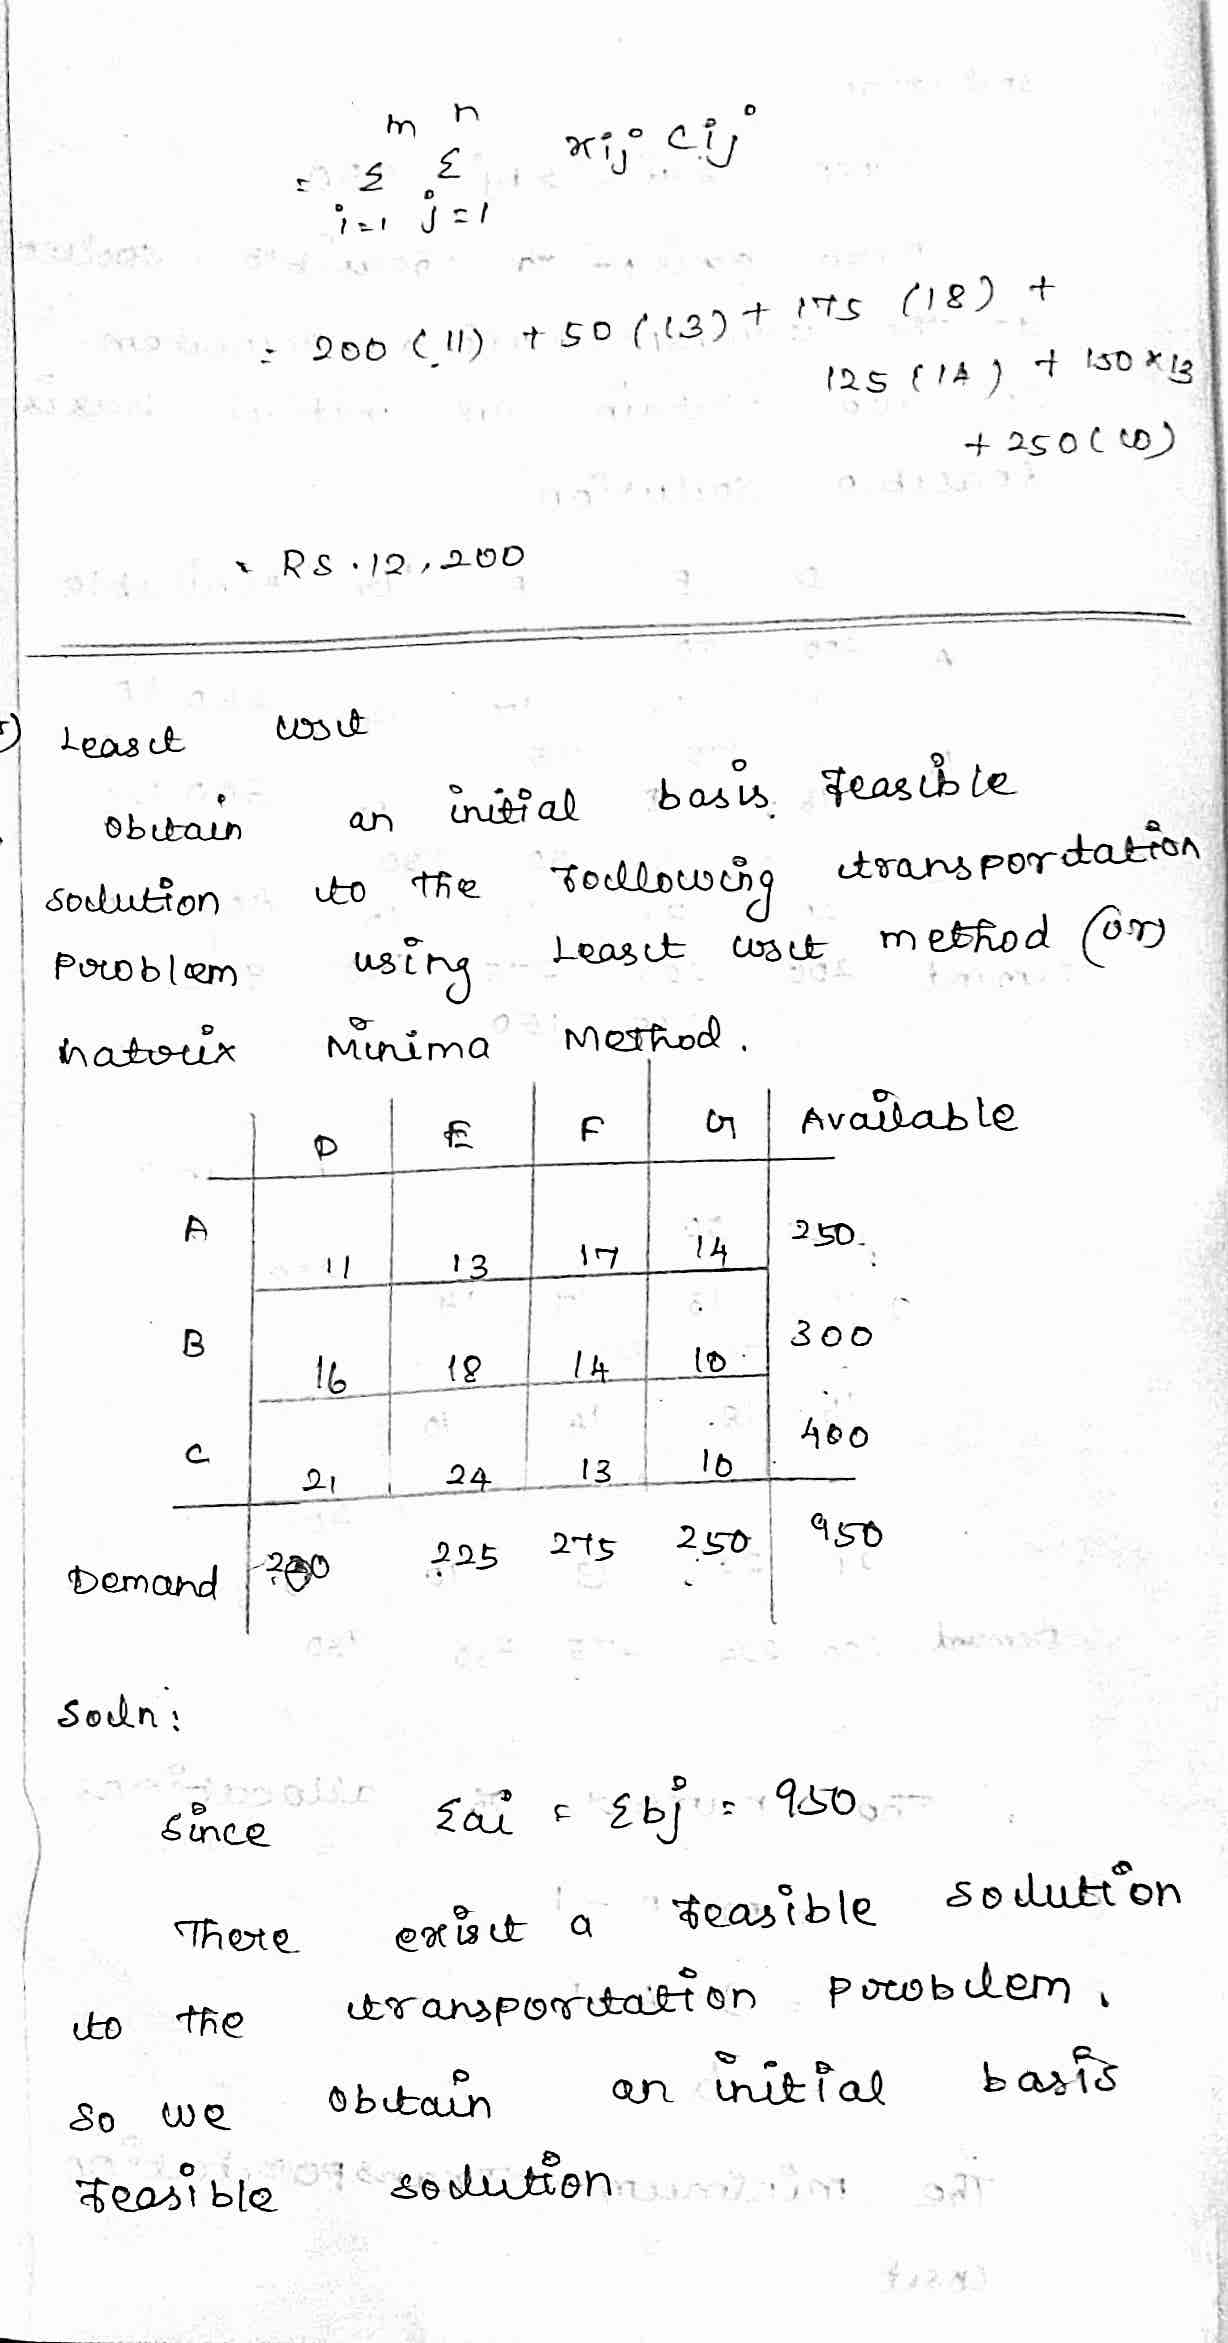 m n
= Σ Σ xij cij
i=1 j=1
= 200 (11) + 50 (13) + 175 (18) +
125 (14) + 150 x 13
+ 250 (10)
= RS . 12,200
Least cost
obtain an initial basis feasible
solution to the following transportation
problem using Least cost method (or)
Matrix Minima Method.
D E F G Available
A 11 13 17 14 250
B 16 18 14 10 300
C 21 24 13 10 400
Demand 200 225 275 250 950
Soln:
Since Σai = Σbj = 950
There exist a feasible solution
to the transportation problem.
So we obtain an initial basis
feasible solution